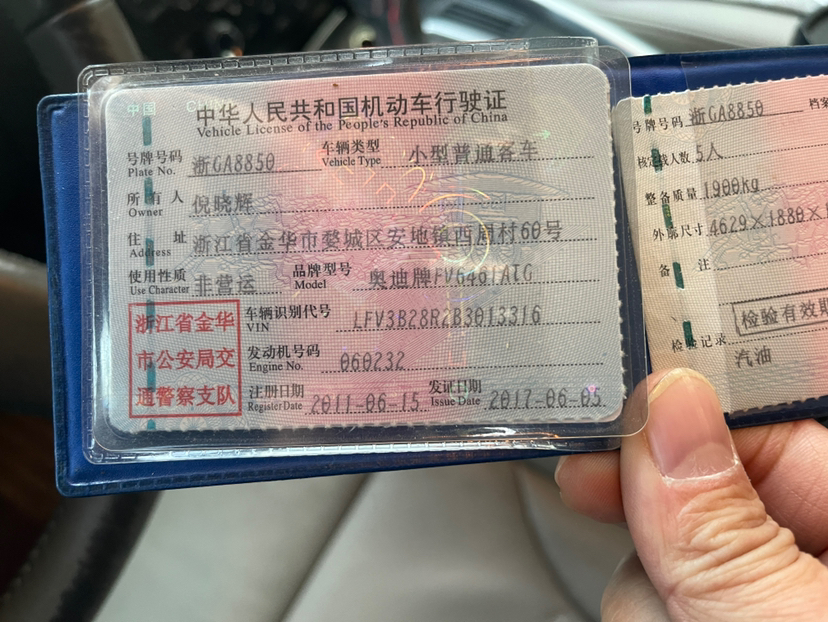 中国 CHINA
中华人民共和国机动车行驶证
Vehicle License of the People's Republic of China
号牌号码 浙GA8850 车辆类型 小型普通客车
Plate No. Vehicle Type
所有人 倪晓辉
Owner
住址 浙江省金华市婺城区安地镇西周村60号
Address
使用性质 非营运 品牌型号 奥迪牌FV6461ATG
Use Character Model
浙江省金华
市公安局交
通警察支队
车辆识别代号 LFV3B28R2B3013316
VIN
发动机号码 060232
Engine No.
注册日期 2011-06-15 发证日期 2017-06-05
Register Date Issue Date
号牌号码 浙GA8850 档案
核定载人数 5人
整备质量 1900kg
外廓尺寸 4629×1880×
备注
检验有效期
检验记录
汽油